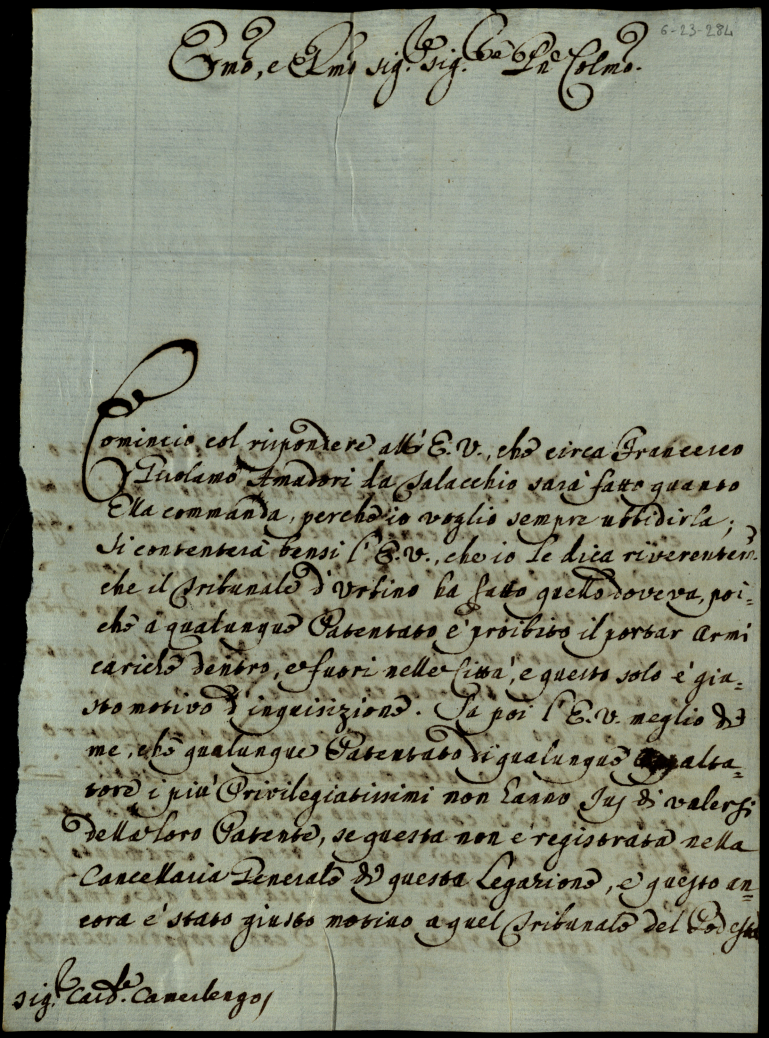 6-23-284
Emo, e Rmo Sig.r Sig.r Pne Colmo.
Comincio col rispondere all'E.V., che circa Francesco
Girolamo Amadori da Salacchio sarà fatto quanto
Ella commanda, perche io voglio sempre ubbidirla;
Si contenterà bensi l'E.V., che io le dica riverentem.
che il Tribunale d'Urbino ha fatto quello doveva, poi=
che à qualunque Patentato è proibito il portar armi
cariche dentro, e fuori nelle Città, e questo solo è giu=
sto motivo d'inquisizione. Sa poi l'E.V. meglio di
me, che qualunque Patentato di qualunque Appalta=
tore i più Privilegiatissimi non hanno Jus di valersi
della loro Patente, se questa non è registrata nella
Cancellaria Generale di questa Legazione, e questo an=
cora è stato giusto motivo a quel Tribunale del Podestà
Sig.r Card.le Camerlengo